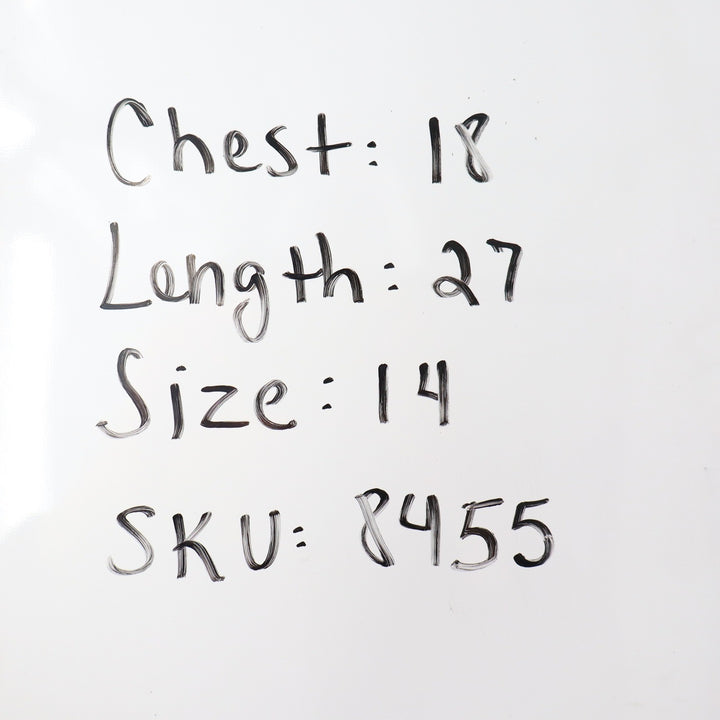 Chest: 18
Length: 27
Size: 14
SKU: 8455